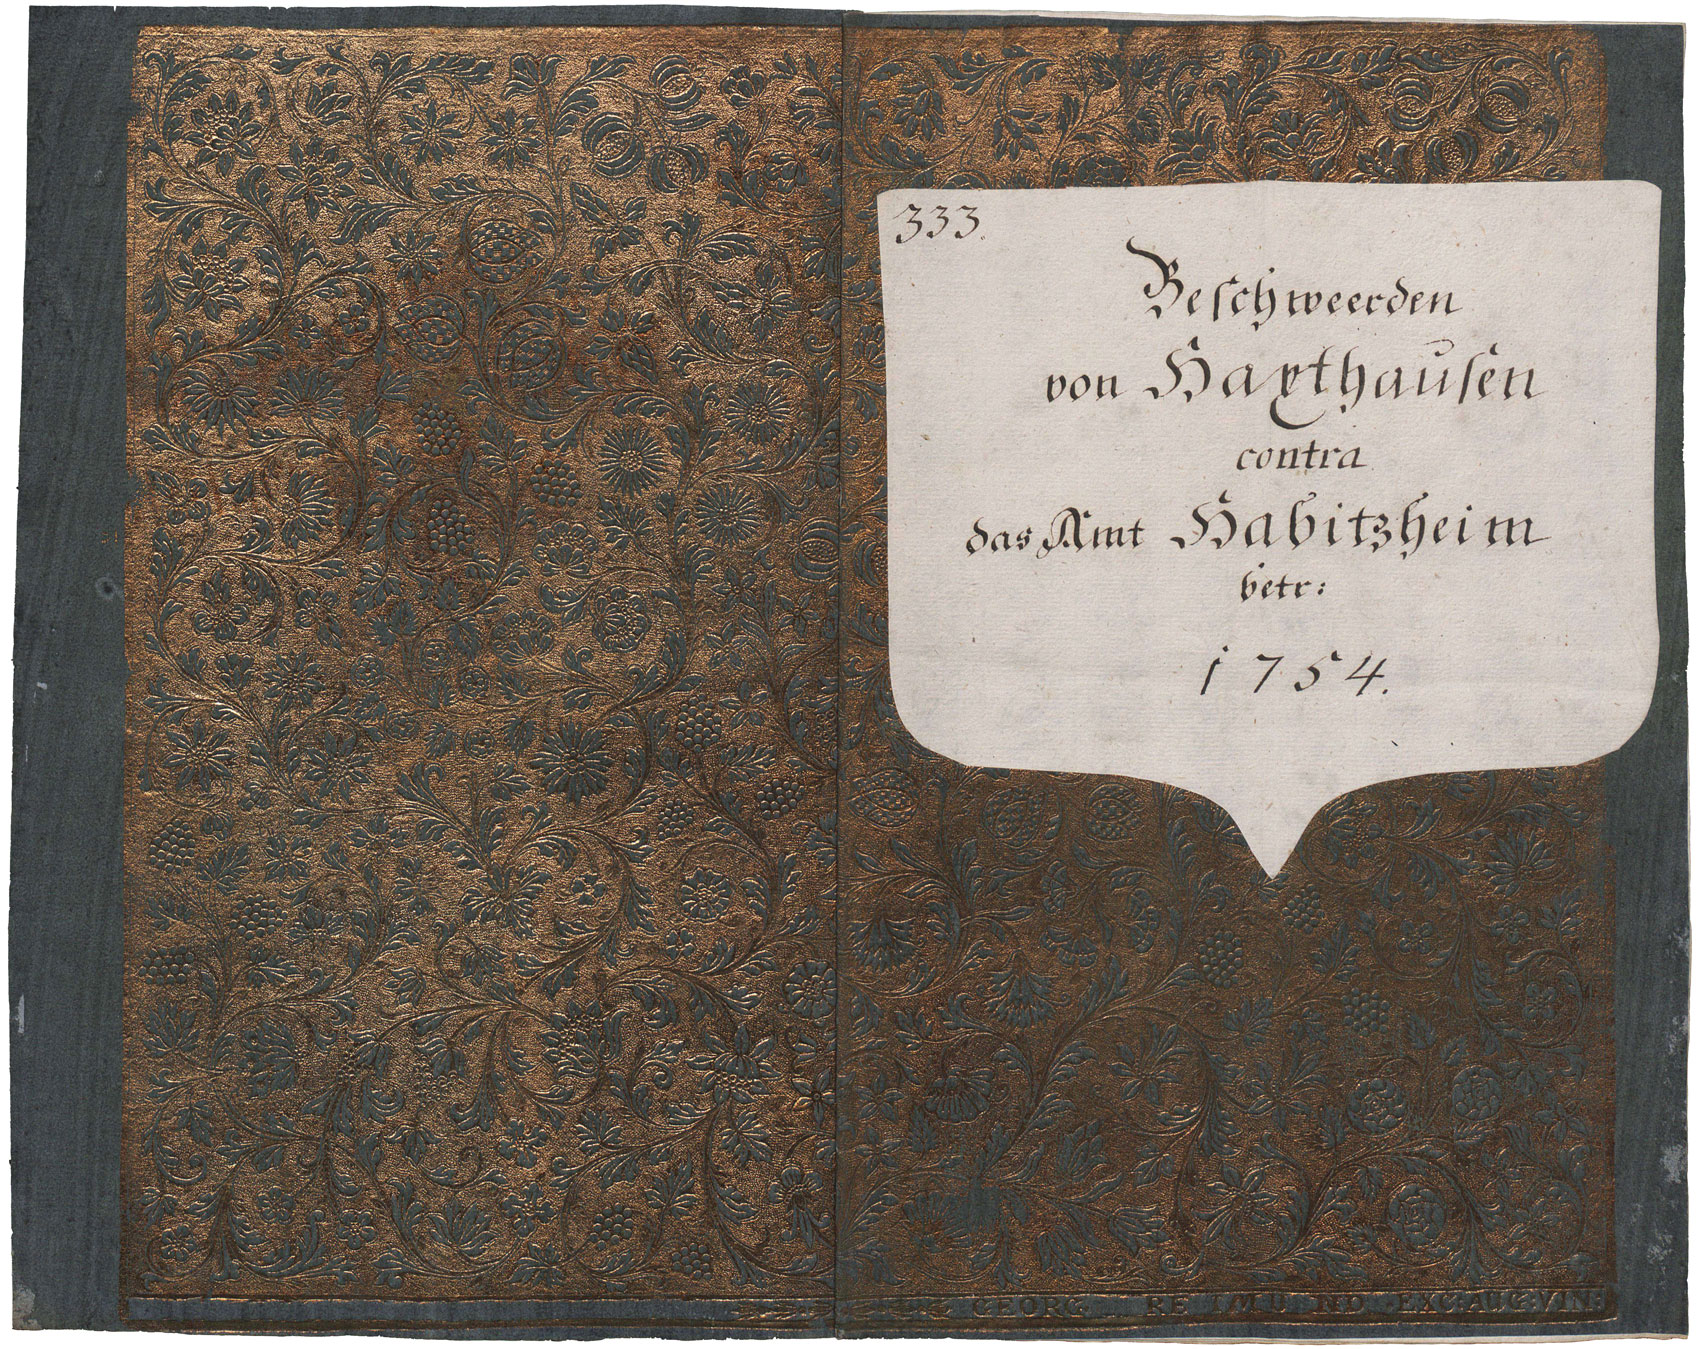 333.
Beschweerden
von Haxthausen
contra
das Amt Habitzheim
betr:
1754.
GEORG REIMUND EXC: AUG: VIN: